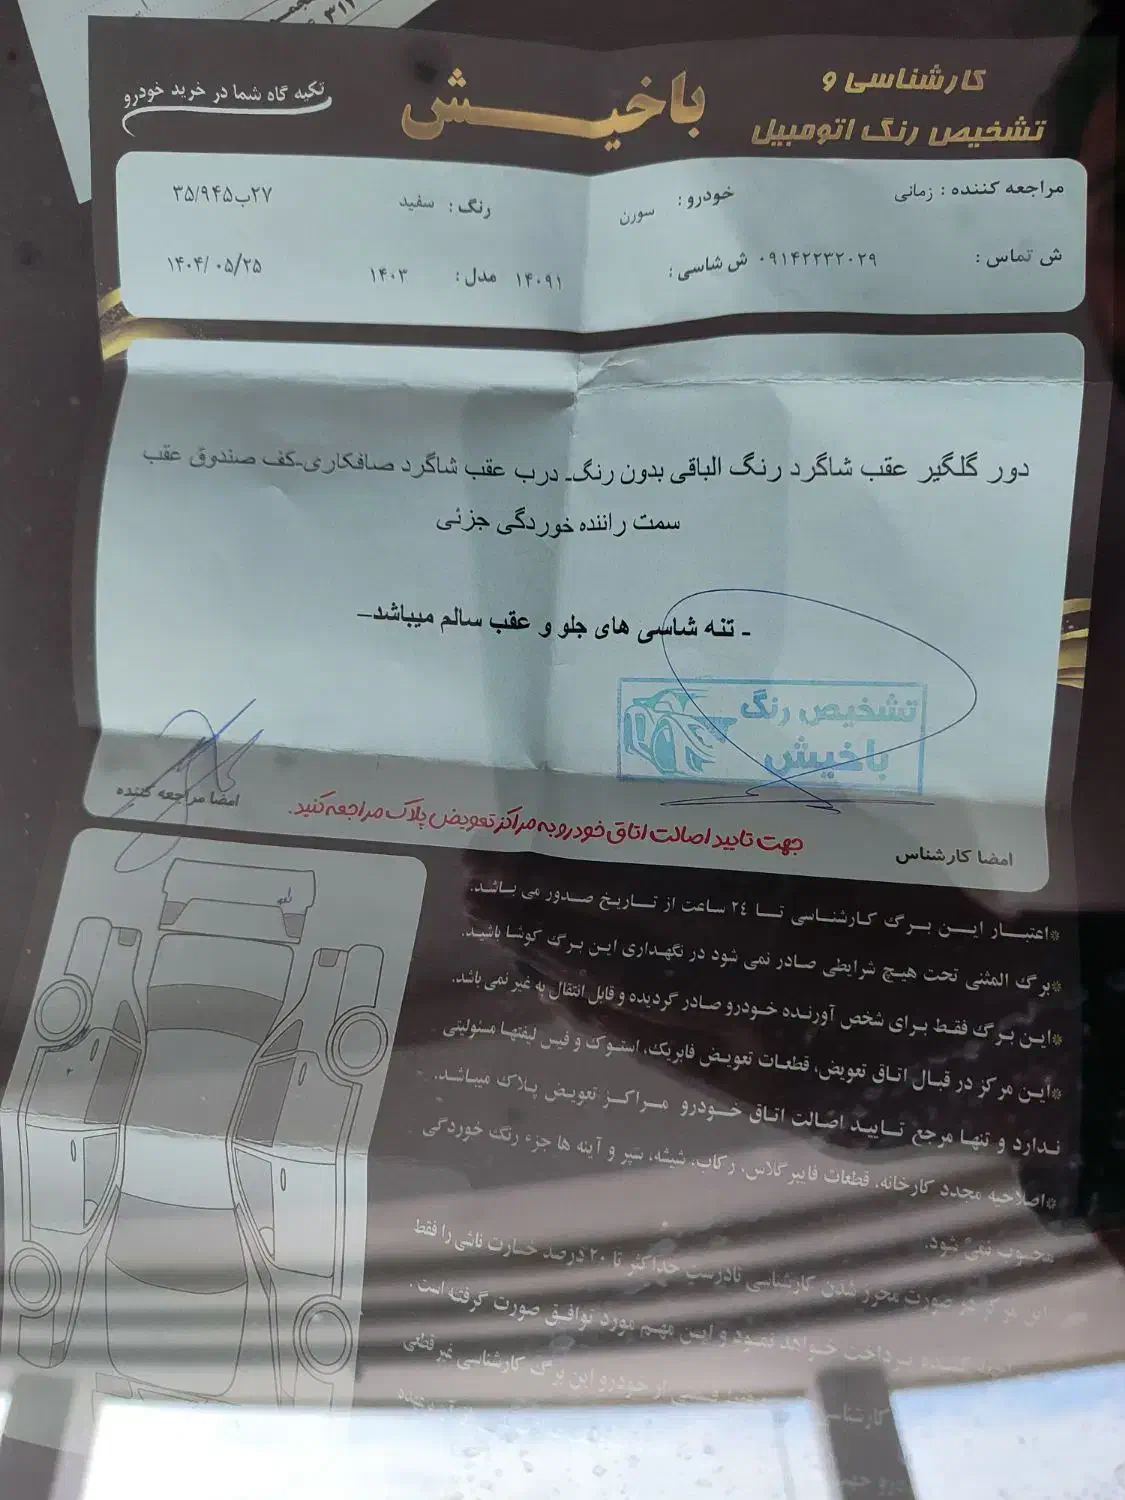 کارشناسی و
تشخیص رنگ اتومبیل
باخیش
تکیه گاه شما در خرید خودرو
مراجعه کننده : زمانی
خودرو : سورن
رنگ : سفید
۲۷ب۳۵/۹۴۵
ش تماس : ۰۹۱۴۲۲۳۲۰۲۹
ش شاسی : ۱۴۰۹۱
مدل : ۱۴۰۳
۱۴۰۴/۰۵/۲۵
دور گلگیر عقب شاگرد رنگ الباقی بدون رنگ- درب عقب شاگرد صافکاری-کف صندوق عقب
سمت راننده خوردگی جزئی
- تنه شاسی های جلو و عقب سالم میباشد–
تشخیص رنگ
باخیش
امضا مراجعه کننده
جهت تایید اصالت اتاق خودرو به مراکز تعویض پلاک مراجعه کنید.
امضا کارشناس
*اعتبار این برگ کارشناسی تا ۲۴ ساعت از تاریخ صدور می باشد.
*برگ المثنی تحت هیچ شرایطی صادر نمی شود در نگهداری این برگ کوشا باشید.
*این برگ فقط برای شخص آورنده خودرو صادر گردیده و قابل انتقال به غیر نمی باشد.
*این مرکز در قبال اتاق تعویض، قطعات تعویض فابریک، استوک و فیس لیفتها مسئولیتی
ندارد و تنها مرجع تایید اصالت اتاق خودرو مراکز تعویض پلاک میباشد.
*اصلاحیه مجدد کارخانه، قطعات فایبرگلاس، رکاب، شیشه، سپر و آینه ها جزء رنگ خوردگی
محسوب نمی شود.
این مرکز در صورت محرز شدن کارشناسی نادرست حداکثر تا ۲۰ درصد خسارت ناشی را فقط
پرداخت خواهد نمود و این مهم مورد توافق صورت گرفته است.
از خودرو این برگ کارشناسی غیر قطعی
کارشناسی